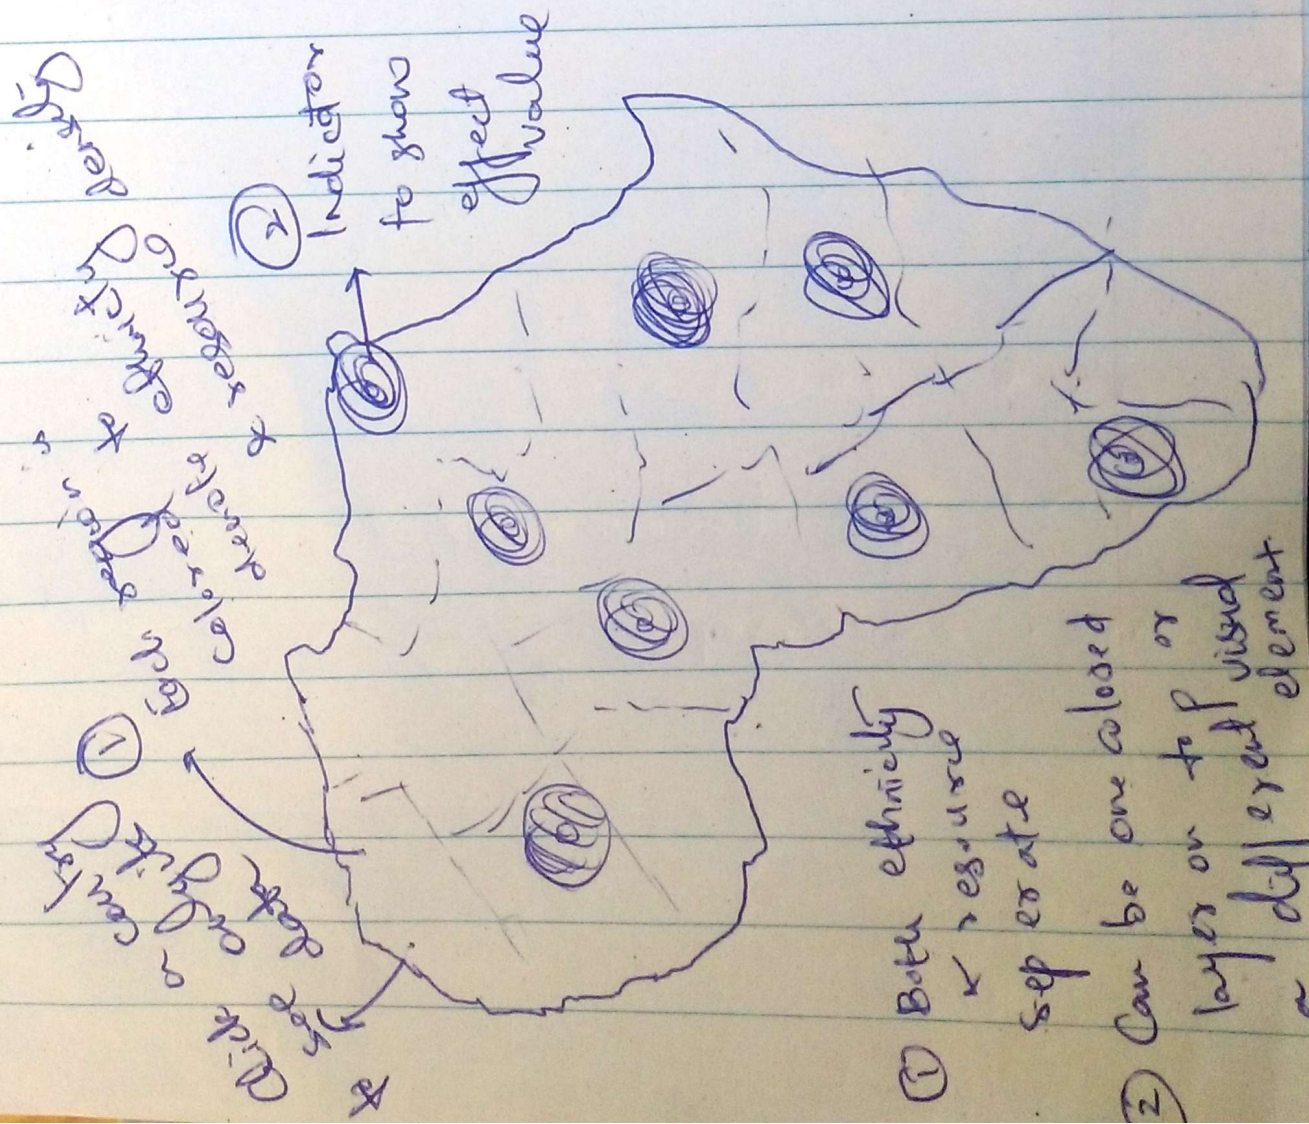 * Click
a country
for
analysis
data
① Each region is
colored
denote
* ethnicity density
* resource
②
Indictor
to show
effect
value
① Both ethnicity
& resource
seperate
② Can be one colosed
layer on top or
a different visual
element